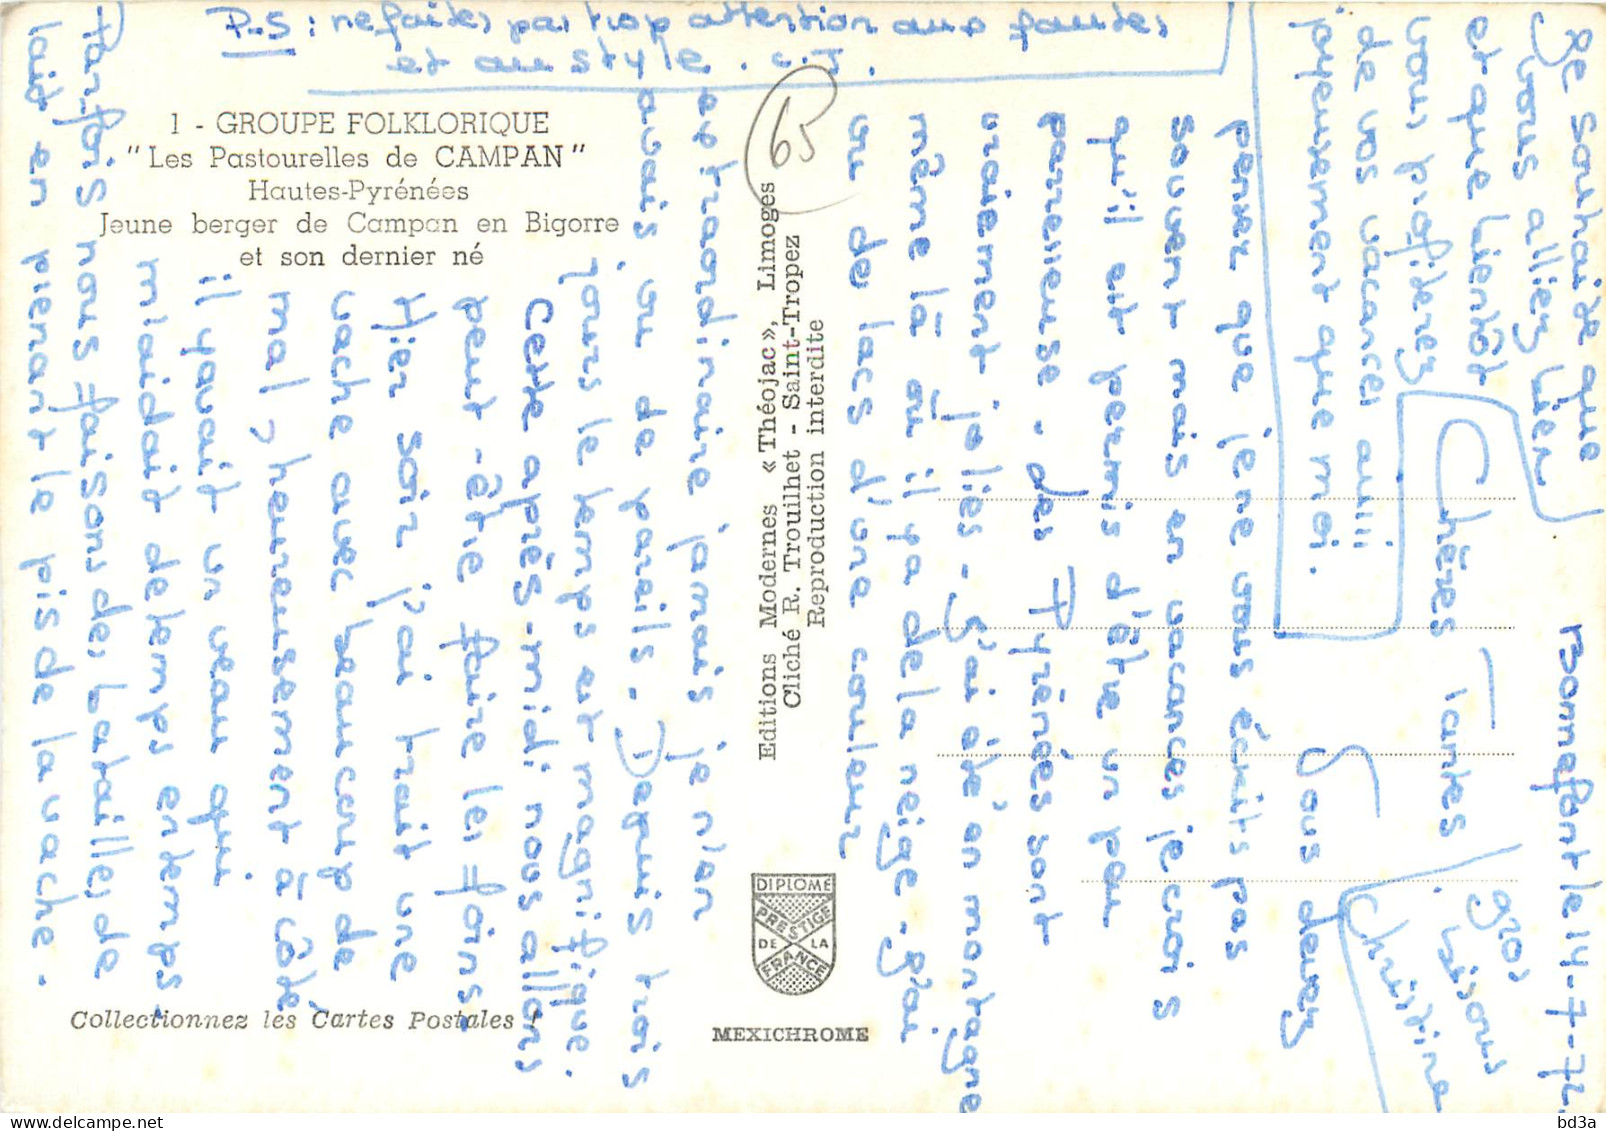 P.S : ne faites pas trop attention aux fautes
et au style. C.J.
1 - GROUPE FOLKLORIQUE
"Les Pastourelles de CAMPAN"
Hautes-Pyrénées
Jeune berger de Campan en Bigorre
et son dernier né
65
Editions Modernes « Théojac », Limoges
Cliché R. Trouilhet - Saint-Tropez
Reproduction interdite
DIPLOME
PRESTIGE
DE LA
FRANCE
MEXICHROME
Collectionnez les Cartes Postales !
Bonnefont le 14-7-72.
Chères Tantes,
Vous devez
penser que je ne vous écrit pas
souvent mais en vacances je crois
qu'il est permis d'être un peu
parreseuse. des Pyrénées sont
vraiement jolies - J'ai été en montagne
même là où il y a de la neige - J'ai
vu de lacs d'une couleur
extraordinaire jamais je n'en
avais vu de pareils. Depuis trois
jours le temps est magnifique.
Cette après-midi nous allons
peut-être faire les foins.
Hier soir j'ai trait une
vache avec beaucoup de
mal, heureusement à côté
il y avait un veau qui
m'aidait de temps en temps.
Parfois nous faisons des batailles de
lait en prenant le pis de la vache.
Je souhaite que
vous alliez bien
et que bientôt
vous profiterez
de vos vacances aussi
joyeusement que moi.
gros bisous
Christine
bd3a